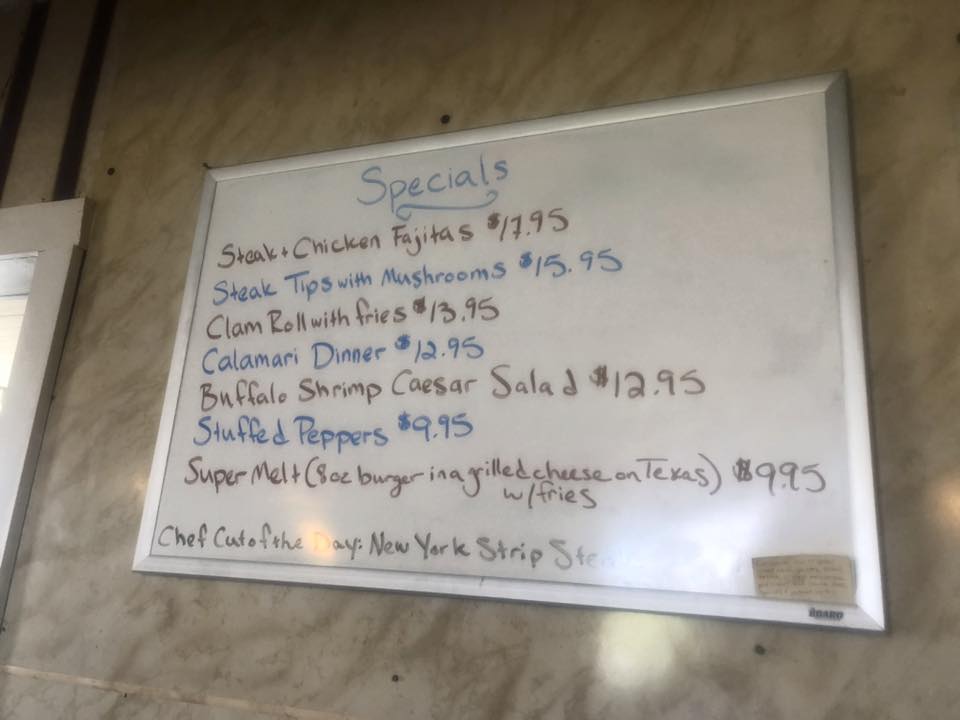 Specials
Steak + Chicken Fajitas $17.95
Steak Tips with Mushrooms $15.95
Clam Roll with fries $13.95
Calamari Dinner $12.95
Buffalo Shrimp Caesar Salad $12.95
Stuffed Peppers $9.95
Super Melt (8oz burger in a grilled cheese on Texas) $9.95
w/fries
Chef Cut of the Day: New York Strip